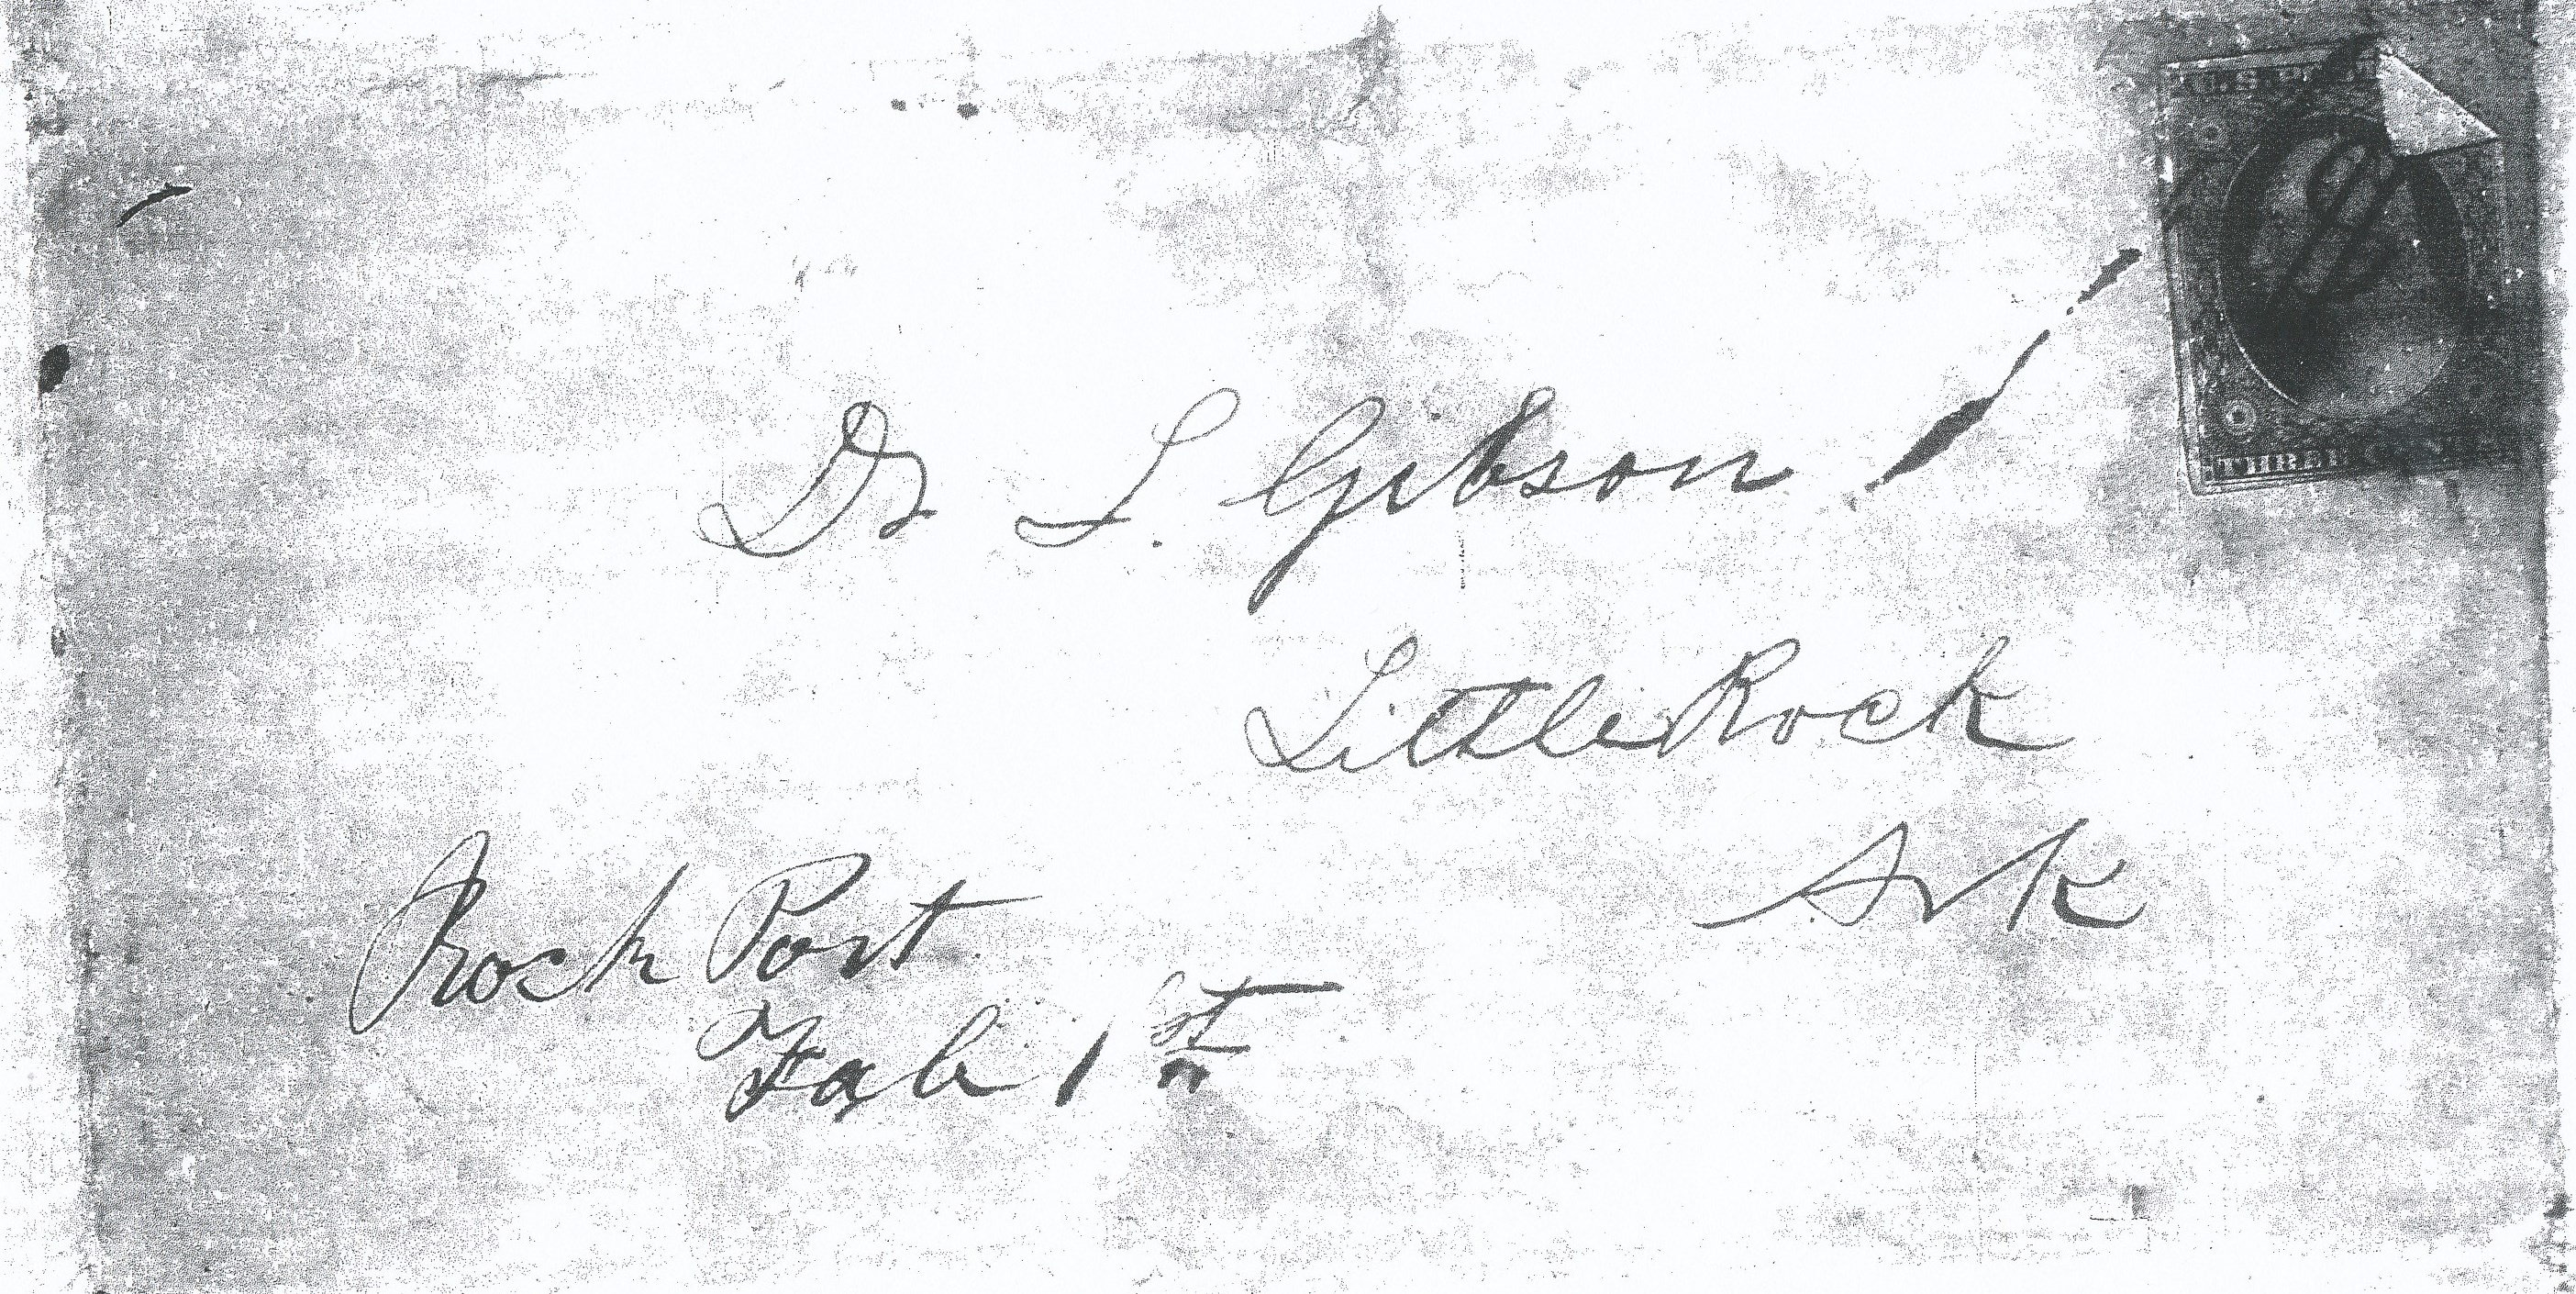 U.S. POST
Dr L. Gibson
Little Rock
Ark
Rock Port
Feb 1st
THREE